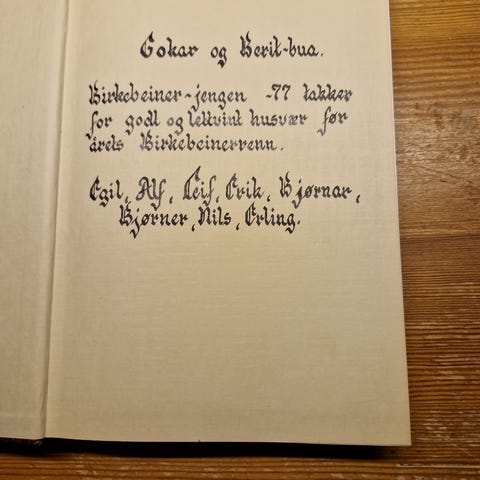 Gokar og Berit-bua.
Birkebeiner-jengen -77 takker
for godt og lettvint husvær før
årets Birkebeinerrenn.
Egil, Alf, Leif, Erik, Bjørnar,
Bjørner, Nils, Erling.